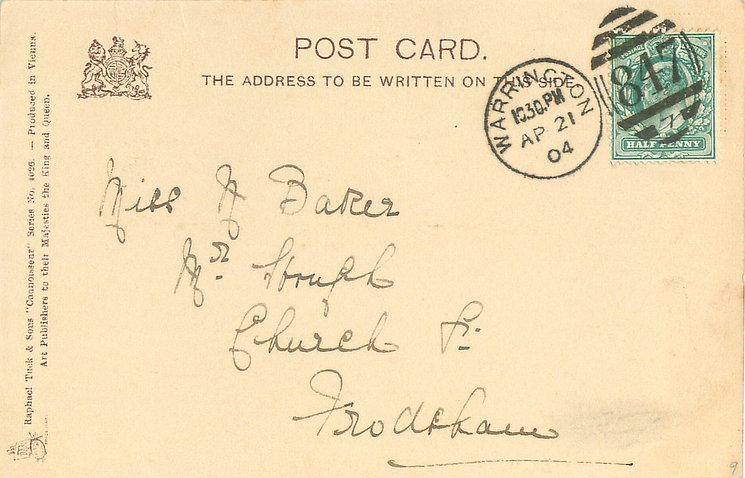 POST CARD.
THE ADDRESS TO BE WRITTEN ON THIS SIDE
WARRINGTON
10.30.PM
AP 21
04
847
HALF PENNY
Miss N Baker
Mr Hough
Church St
Frodsham
Raphael Tuck & Sons "Connoisseur" Series No. 4026. — Produced in Vienna.
Art Publishers to their Majesties the King and Queen.
9